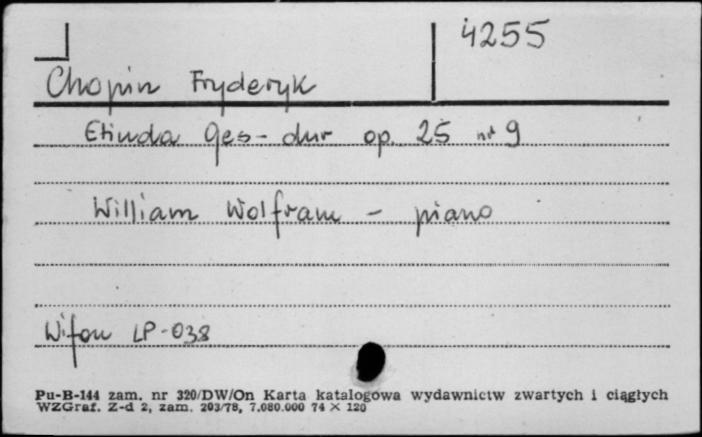 4255
Chopin Fryderyk
Etiuda Ges-dur op. 25 nr 9
William Wolfram - piano
Wifon LP-038
Pu-B-144 zam. nr 320/DW/On Karta katalogowa wydawnictw zwartych i ciągłych
WZGraf. Z-d 2, zam. 203/78, 7.080.000 74 × 120